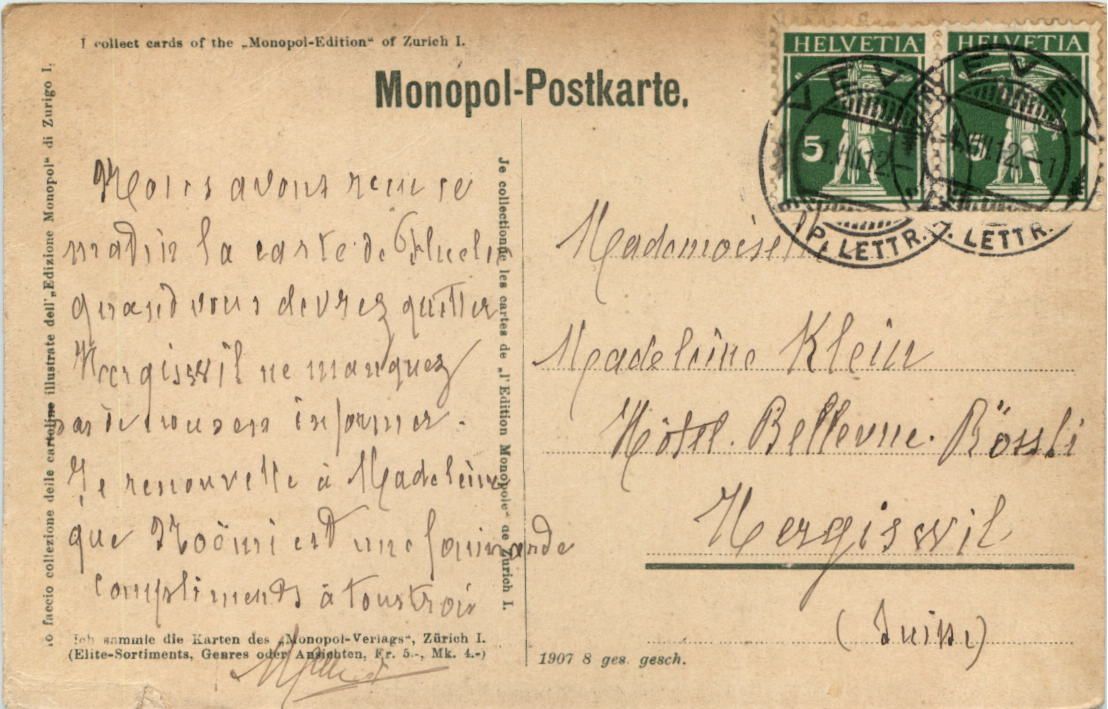 I collect cards of the „Monopol-Edition“ of Zurich I.
Monopol-Postkarte.
HELVETIA HELVETIA
5 5
VEVEY VEVEY
VIII 12.- VIII 12.-1
EXP. LETTR. EXP. LETTR.
Io faccio collezione delle cartoline illustrate dell'„Edizione Monopol“ di Zurigo I.
Nous avons reçu ce
matin la carte de Fluelen
quand vous devrez quitter
Hergiswil ne manquez
pas de nous en informer.
Je renouvelle à Madeleine
que Noömi est une
compliments à tous trois
Je collectionne les cartes de „l'Edition Monopole“ de Zurich I.
Ich sammle die Karten des „Monopol-Verlags“, Zürich I.
(Elite-Sortiments, Genres oder Ansichten, Fr. 5.-, Mk. 4.-)
Mademoiselle
Madeleine Klein
Hôtel. Bellevue. Rössli
Hergiswil
(Suisse)
1907 8 ges. gesch.